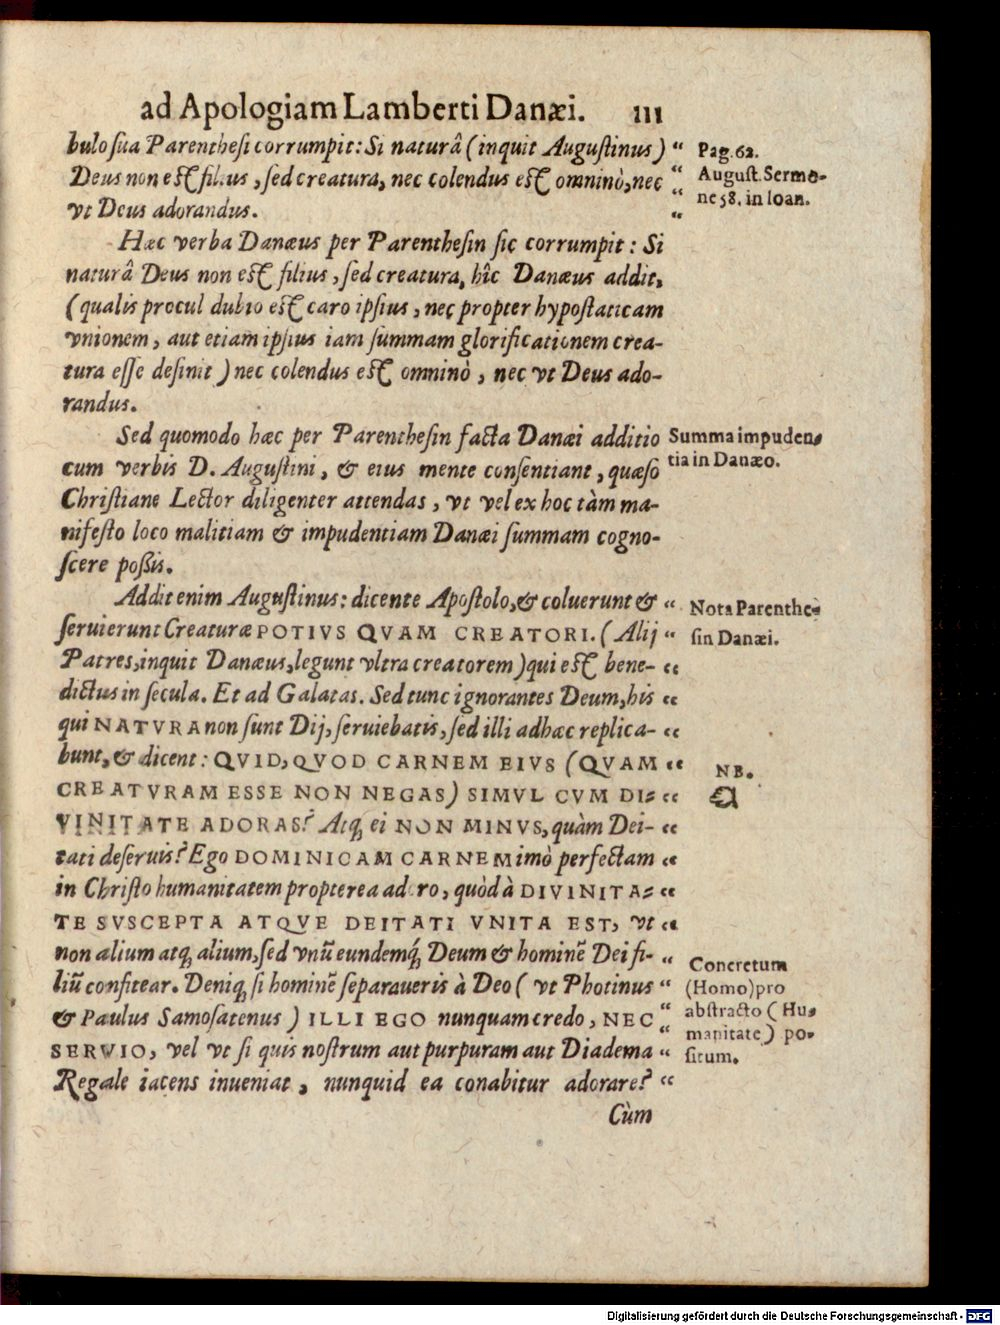 ad Apologiam Lamberti Danæi. 111
bulo sua Parenthesi corrumpit: Si naturâ (inquit Augustinus) “
Deus non est filius, sed creatura, nec colendus est omninò, nec “
vt Deus adorandus. “
Pag. 62.
August. Sermo-
ne 58. in Ioan.
Hæc verba Danæus per Parenthesin sic corrumpit: Si
naturâ Deus non est filius, sed creatura, hîc Danæus addit,
(qualis procul dubio est caro ipsius, nec propter hypostaticam
vnionem, aut etiam ipsius iam summam glorificationem crea-
tura esse desinit) nec colendus est omninò, nec vt Deus ado-
randus.
Sed quomodo hæc per Parenthesin facta Danæi additio
cum verbis D. Augustini, & eius mente consentiant, quæso
Christiane Lector diligenter attendas, vt vel ex hoc tàm ma-
nifesto loco malitiam & impudentiam Danæi summam cogno-
scere poßis.
Summa impuden-
tia in Danæo.
Addit enim Augustinus: dicente Apostolo, & coluerunt & “
seruierunt Creaturæ POTIVS QVAM CREATORI. (Alij “
Patres, inquit Danæus, legunt vltra creatorem) qui est bene- “
dictus in secula. Et ad Galatas. Sed tunc ignorantes Deum, his “
qui NATVRA non sunt Dij, seruiebatis, sed illi adhæc replica- “
bunt, & dicent: QVID, QVOD CARNEM EIVS (QVAM “
CREATVRAM ESSE NON NEGAS) SIMVL CVM DI- “
VINITATE ADORAS? Atq́; ei NON MINVS, quàm Dei- “
tati deseruis? Ego DOMINICAM CARNEM imò perfectam “
in Christo humanitatem propterea adoro, quòd à DIVINITA- “
TE SVSCEPTA ATQVE DEITATI VNITA EST, vt “
non alium atq́; alium, sed vnũ eundemq́; Deum & hominẽ Dei fi- “
liũ confitear. Deniq́; si hominẽ separaueris à Deo (vt Photinus “
& Paulus Samosatenus) ILLI EGO nunquam credo, NEC “
SERVIO, vel vt si quis nostrum aut purpuram aut Diadema “
Regale iacens inueniat, nunquid ea conabitur adorare? “
Nota Parenthe-
sin Danæi.
NB.
Concretum
(Homo) pro
abstracto (Hu-
manitate) po-
situm.
Cùm
Digitalisierung gefördert durch die Deutsche Forschungsgemeinschaft - DFG